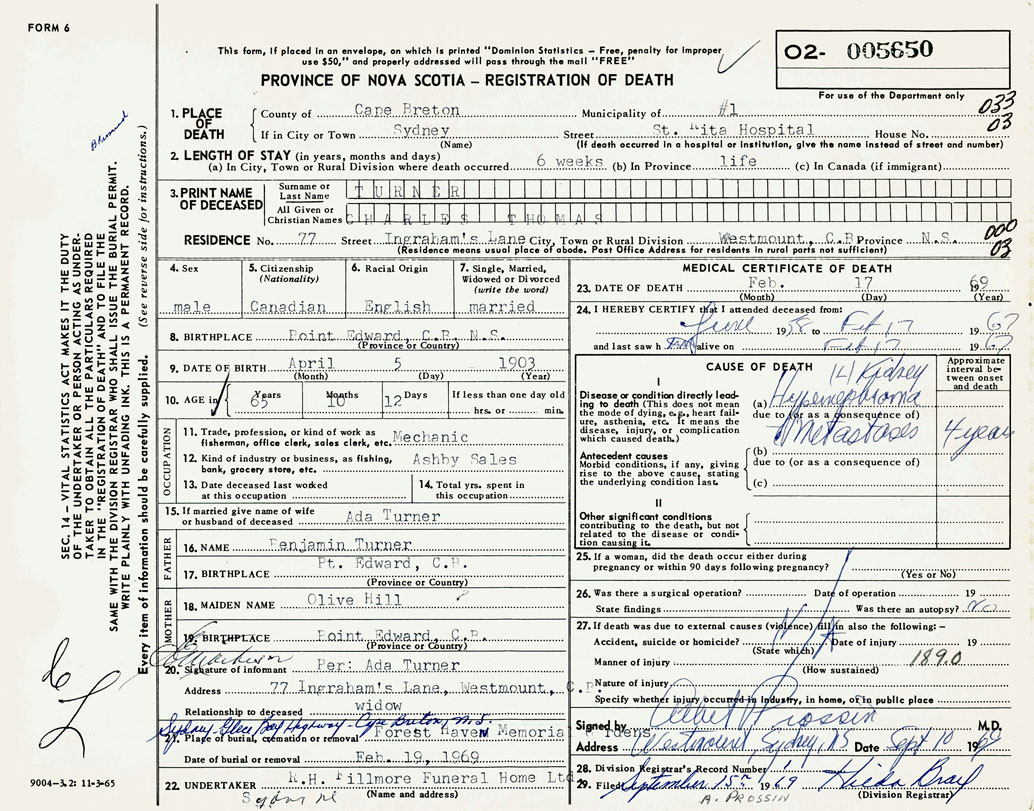 FORM 6
This form, if placed in an envelope, on which is printed "Dominion Statistics – Free, penalty for improper
use $50," and properly addressed will pass through the mail "FREE"
PROVINCE OF NOVA SCOTIA – REGISTRATION OF DEATH
02- 005650
For use of the Department only
033
03
1. PLACE OF DEATH
County of Cape Breton Municipality of #1
If in City or Town Sydney Street St. Rita Hospital House No.
(Name) (If death occurred in a hospital or institution, give the name instead of street and number)
2. LENGTH OF STAY (in years, months and days)
(a) In City, Town or Rural Division where death occurred 6 weeks (b) In Province life (c) In Canada (if immigrant)
3. PRINT NAME OF DECEASED
Surname or Last Name TURNER
All Given or Christian Names CHARLES THOMAS
RESIDENCE No. 77 Street Ingraham's Lane City, Town or Rural Division Westmount, C.B. Province N.S.
(Residence means usual place of abode. Post Office Address for residents in rural parts not sufficient)
000
03
4. Sex
male
5. Citizenship (Nationality)
Canadian
6. Racial Origin
English
7. Single, Married, Widowed or Divorced (write the word)
married
8. BIRTHPLACE Point Edward, C.B. N.S.
(Province or Country)
9. DATE OF BIRTH April 5 1903
(Month) (Day) (Year)
10. AGE in Years 65 Months 10 Days 12 If less than one day old
hrs. or min.
OCCUPATION
11. Trade, profession, or kind of work as
fisherman, office clerk, sales clerk, etc. Mechanic
12. Kind of industry or business, as fishing,
bank, grocery store, etc. Ashby Sales
13. Date deceased last worked
at this occupation
14. Total yrs. spent in
this occupation
15. If married give name of wife
or husband of deceased Ada Turner
FATHER
16. NAME Benjamin Turner
17. BIRTHPLACE Pt. Edward, C.B.
(Province or Country)
MOTHER
18. MAIDEN NAME Olive Hill
19. BIRTHPLACE Point Edward, C.B.
(Province or Country)
20. Signature of informant Per: Ada Turner
Address 77 Ingraham's Lane, Westmount, C.B.
Relationship to deceased widow
Sydney-Glace Bay Highway - Cape Breton, N.S.
21. Place of burial, cremation or removal Forest Haven Memorial Gardens.
Date of burial or removal Feb. 19, 1969
22. UNDERTAKER R.H. Fillmore Funeral Home Ltd
(Name and address)
Sydney NS
MEDICAL CERTIFICATE OF DEATH
23. DATE OF DEATH Feb. 17 1969
(Month) (Day) (Year)
24. I HEREBY CERTIFY that I attended deceased from:
June 1958 to Feb 17 1967
and last saw him alive on Feb 17 1967
CAUSE OF DEATH
Approximate interval between onset and death
I
Disease or condition directly leading
to death (This does not mean
the mode of dying, e.g., heart failure,
asthenia, etc. It means the
disease, injury, or complication
which caused death.)
(a) Hypernephroma (4) Kidney
due to (or as a consequence of)
Metastases 4 years
Antecedent causes
Morbid conditions, if any, giving
rise to the above cause, stating
the underlying condition last.
(b)
due to (or as a consequence of)
(c)
II
Other significant conditions
contributing to the death, but not
related to the disease or condition
causing it.
25. If a woman, did the death occur either during
pregnancy or within 90 days following pregnancy?
(Yes or No)
26. Was there a surgical operation? Date of operation 19
State findings Was there an autopsy? No
27. If death was due to external causes (violence) fill in also the following:–
Accident, suicide or homicide? Date of injury 19
(State which)
N/A
Manner of injury 189.0
(How sustained)
Nature of injury
Specify whether injury occurred in industry, in home, or in public place
Signed by Albert Prossin M.D.
Address Westmount, Sydney, NS Date Sept 10 1969
28. Division Registrar's Record Number
29. Filed September 15th 1969 Hilda Bray
A. PROSSIN (Division Registrar)
SEC. 14 – VITAL STATISTICS ACT MAKES IT THE DUTY
OF THE UNDERTAKER OR PERSON ACTING AS UNDERTAKER
TO OBTAIN ALL THE PARTICULARS REQUIRED
IN THE "REGISTRATION OF DEATH" AND TO FILE THE
SAME WITH THE DIVISION REGISTRAR WHO SHALL ISSUE THE BURIAL PERMIT.
WRITE PLAINLY WITH UNFADING INK. THIS IS A PERMANENT RECORD.
Every item of information should be carefully supplied. (See reverse side for instructions.)
9004-3.2: 11-3-65